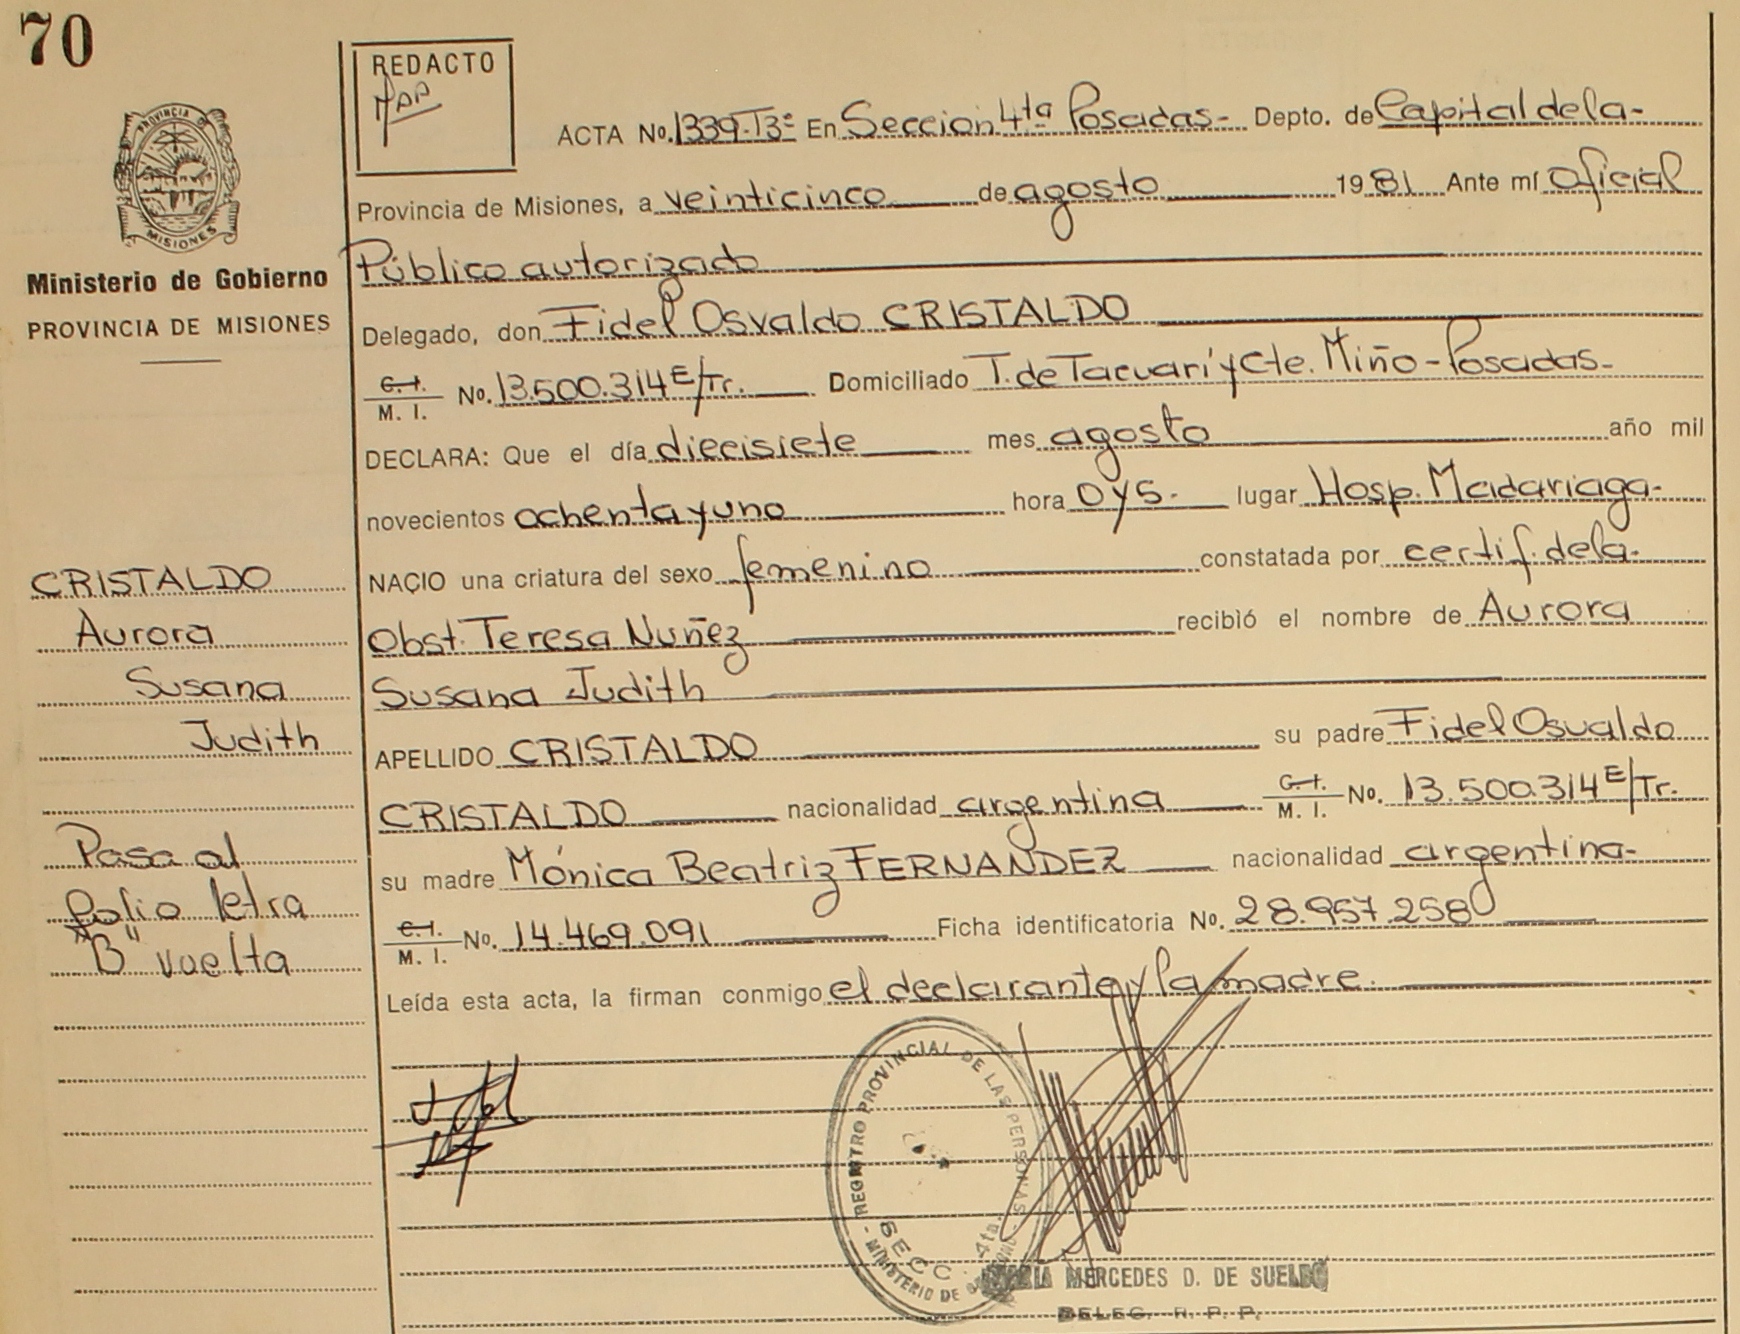 70
PROVINCIA D
MISIONES
Ministerio de Gobierno
PROVINCIA DE MISIONES
REDACTO
ACTA No. 1339-T3º En Sección 4ta Posadas- Depto. de Capital de la-
Provincia de Misiones, a veinticinco de agosto 1981 Ante mí Oficial
Público autorizado
Delegado, don Fidel Osvaldo CRISTALDO
C.I. M. I. No. 13.500.314 E/Tr. Domiciliado T. de Tacuarí y Cte. Miño-Posadas-
DECLARA: Que el día diecisiete mes agosto año mil
novecientos ochenta y uno hora 0 y 5.- lugar Hosp. Madariaga-
NACIO una criatura del sexo femenino constatada por certif. de la-
Obst. Teresa Nuñez recibió el nombre de Aurora
Susana Judith
APELLIDO CRISTALDO su padre Fidel Osvaldo
CRISTALDO nacionalidad argentina C.I. M. I. No. 13.500.314 E/Tr.
su madre Mónica Beatriz FERNANDEZ nacionalidad argentina-
C.I. M. I. No. 14.469.091 Ficha identificatoria No. 28.957.258
Leída esta acta, la firman conmigo el declarante y la madre.
CRISTALDO
Aurora
Susana
Judith
Pasa al
folio letra
"B" vuelta
REGISTRO PROVINCIAL DE LAS PERSONAS
- MINISTERIO DE
SECC. 4ta.
MERCEDES D. DE SUELDO
DELEG. R. P. P.